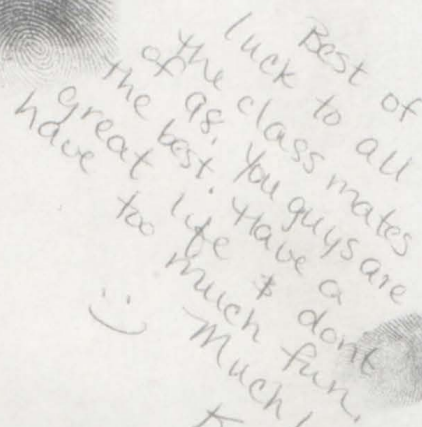 Best of
luck to all
the class mates
of 98. You guys are
the best. Have a
great life & dont
have too much fun.
Much